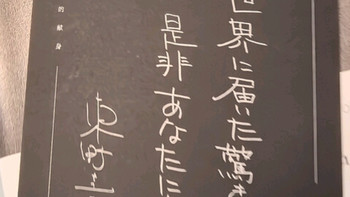 世界に届いた驚き
是非あなたに
東野圭
的献身